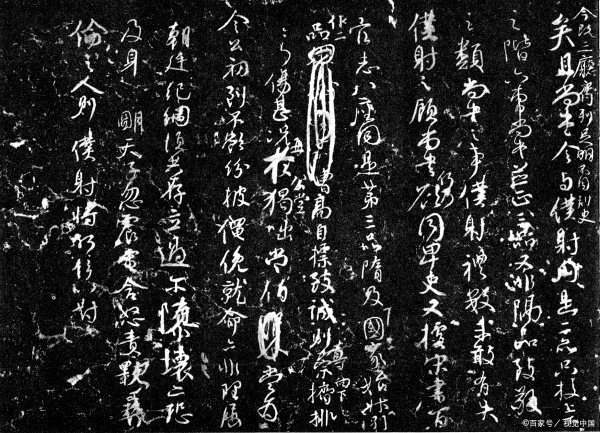 今既三廳齊列足明不同刺史
矣且尚書令与僕射同是二品只校上下
之階六曹尚書並正三品又非隔品致敬
之類尚書之事僕射禮數未敢有失
僕射之顧尚書何乃欲同卑吏又據宋書百
官志八座同是第三品隋及國家始升別
作二品高自標致誠則尊崇向下擠排
無乃傷甚況再於公堂獨咄常伯當為
令公初到不欲紛披僶俛就命亦非理屈
朝廷紀綱須共存立過爾隳壞亦恐
及身明天子忽震電含怒責斁彝
倫之人則僕射將何辭以對
©百家号/视觉中国